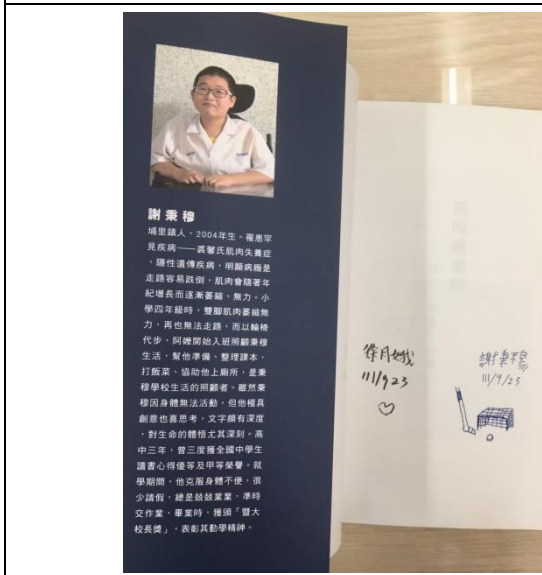 謝秉穆
埔里鎮人，2004年生。罹患罕
見疾病——裘馨氏肌肉失養症
，隱性遺傳疾病，明顯病癥是
走路容易跌倒，肌肉會隨著年
紀增長而逐漸萎縮、無力。小
學四年級時，雙腳肌肉萎縮無
力，再也無法走路，而以輪椅
代步，阿嬤開始入班照顧秉穆
生活，幫他準備、整理課本，
打飯菜、協助他上廁所，是秉
穆學校生活的照顧者。雖然秉
穆因身體無法活動，但他極具
創意也喜思考，文字頗有深度
，對生命的體悟尤其深刻。高
中三年，曾三度獲全國中學生
讀書心得優等及甲等榮譽。就
學期間，他克服身體不便，很
少請假，總是兢兢業業，準時
交作業，畢業時，獲頒「暨大
校長獎」，表彰其勤學精神。
徐月娥
111/9/23
謝秉穆
111/9/23